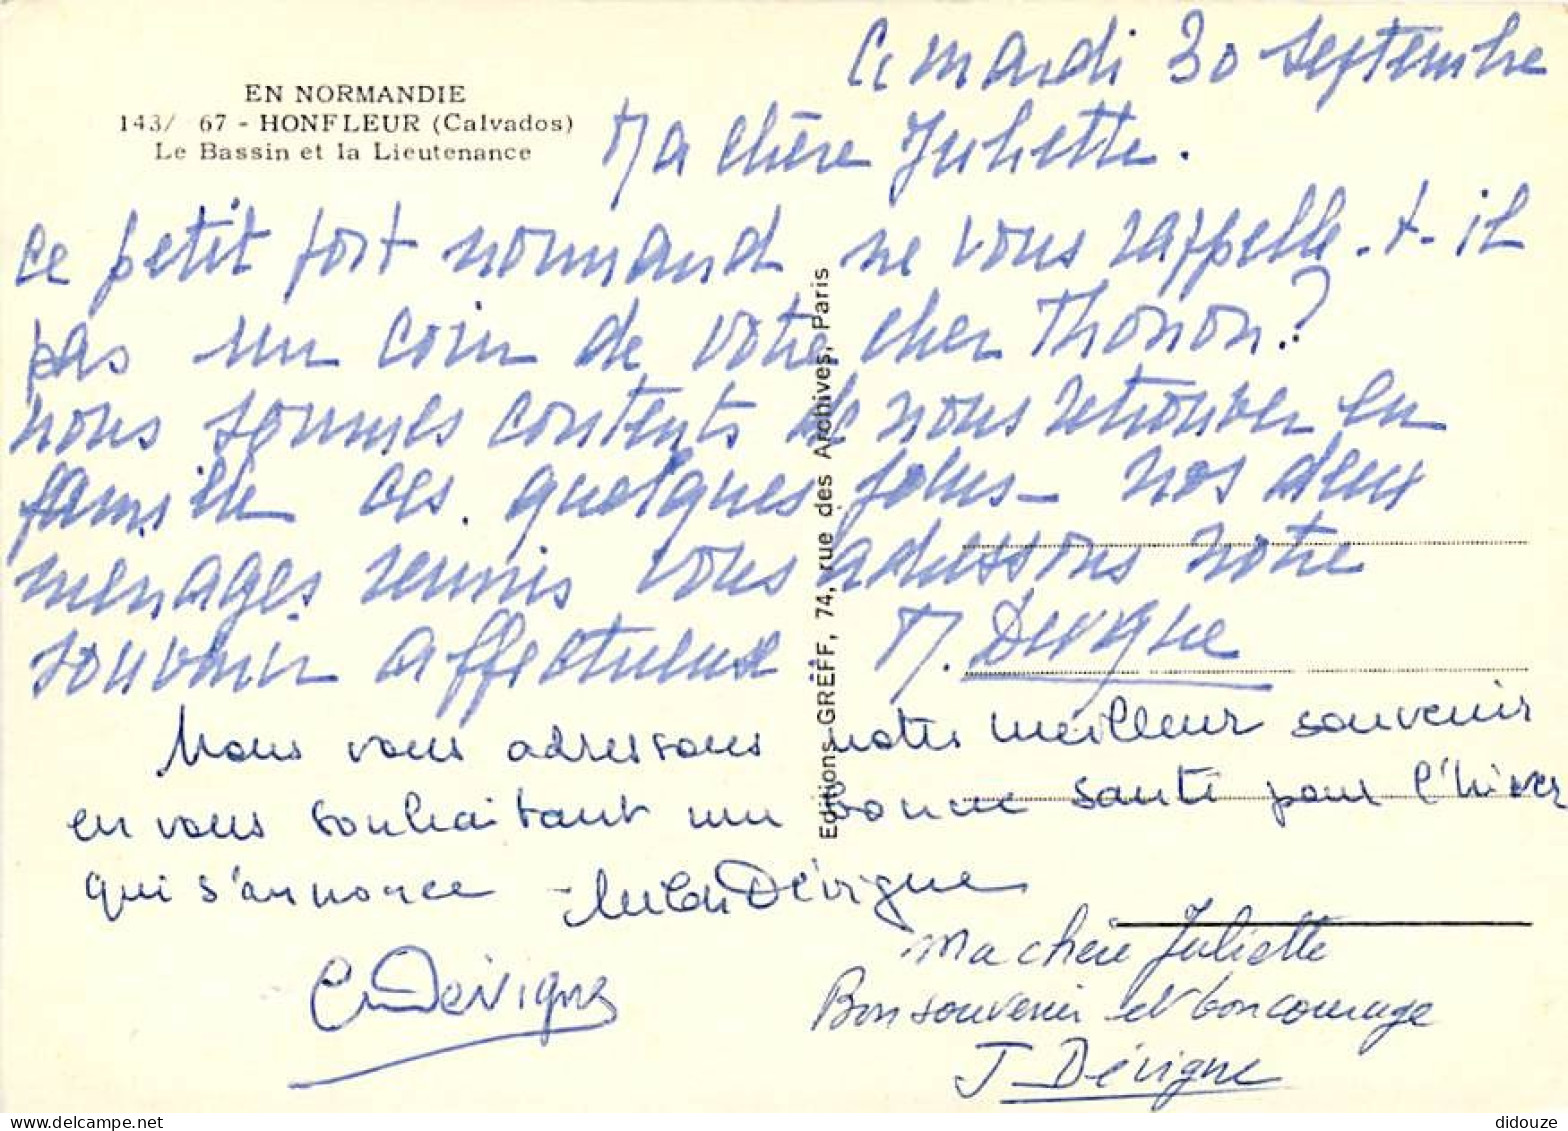 EN NORMANDIE
143/ 67 - HONFLEUR (Calvados)
Le Bassin et la Lieutenance
Ce mardi 30 septembre
Ma chère Juliette.
Ce petit port normand ne vous rappelle-t-il
pas un coin de votre cher Thonon?
nous sommes contents de nous retrouver en
famille ces quelques jours - nos deux
ménages réunis vous adressons notre
souvenir affectueux M. Devigne
Nous vous adressons notre meilleur souvenir
en vous souhaitant un bonne santé pour l'hiver
qui s'annonce - Dévigne
Dévigne
Ma chère Juliette
Bon souvenir et bon courage
J Dévigne
Editions GREFF, 74, rue des Archives, Paris
didouze